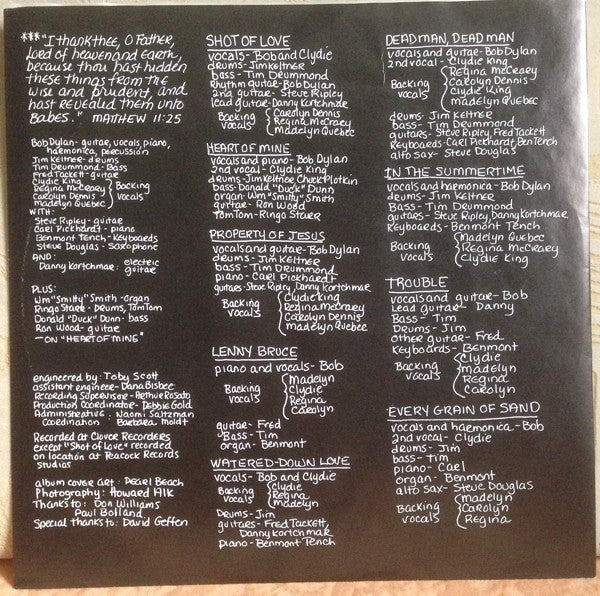 ***"I thank thee, O Father,
Lord of heaven and earth,
because thou hast hidden
these things from the
wise and prudent, and
hast revealed them unto
Babes." MATTHEW 11:25
Bob Dylan - guitar, vocals, piano,
harmonica, percussion
Jim Keltner - drums
Tim Drummond - Bass
Fred Tackett - guitar
Clydie King
Regina McCreary
Carolyn Dennis
Madelyn Quebec
Backing
vocals
WITH:
Steve Ripley - guitar
Carl Pickhardt - piano
Benmont Tench - Keyboards
Steve Douglas - Saxophone
AND:
Danny Kortchmar: electric
guitar
PLUS:
Wm "Smitty" Smith - organ
Ringo Starr - Drums, Tom Tom
Donald "Duck" Dunn - bass
Ron Wood - guitar
- ON "HEART OF MINE"
engineered by: Toby Scott
assistant engineer - Dana Bisbee
Recording Supervisor - Arthur Rosato
Production Coordinator - Debbie Gold
Administrative Naomi Saltzman
Coordination Barbara Moldt
Recorded at Clover Recorders
except "Shot of Love" recorded
on location at Peacock Records
studios
album cover art: Pearl Beach
Photography: Howard Alk
Thanks to: Don Williams
Paul Bofland
Special thanks to: David Geffen
SHOT OF LOVE
vocals - Bob and Clydie
drums - Jim Keltner
bass - Tim Drummond
Rhythm guitar - Bob Dylan
2nd guitar - Steve Ripley
lead guitar - Danny Kortchmar
Backing
vocals
Carolyn Dennis
Regina McCreary
Madelyn Quebec
HEART OF MINE
vocals and piano - Bob Dylan
2nd vocal - Clydie King
drums - Jim Keltner Chuck Plotkin
Bass - Donald "Duck" Dunn
organ - Wm "Smitty" Smith
guitar - Ron Wood
Tom Tom - Ringo Starr
PROPERTY OF JESUS
vocals and guitar - Bob Dylan
drums - Jim Keltner
bass - Tim Drummond
piano - Carl Pickhardt
guitars - Steve Ripley, Danny Kortchmar
Backing
vocals
Clydie King
Regina McCreary
Carolyn Dennis
Madelyn Quebec
LENNY BRUCE
piano and vocals - Bob
Backing
vocals
Madelyn
Clydie
Regina
Carolyn
guitar - Fred
Bass - Tim
organ - Benmont
WATERED-DOWN LOVE
vocals - Bob and Clydie
Backing
vocals
Clydie
Regina
Madelyn
Drums - Jim
guitars - Fred Tackett,
Danny Kortchmar
piano - Benmont Tench
DEAD MAN, DEAD MAN
vocals and guitar - Bob Dylan
2nd vocal - Clydie King
Backing
vocals
Regina McCreary
Carolyn Dennis
Clydie King
Madelyn Quebec
drums - Jim Keltner
bass - Tim Drummond
guitars - Steve Ripley, Fred Tackett
Keyboards - Carl Pickhardt, Ben Tench
alto sax - Steve Douglas
IN THE SUMMERTIME
vocals and harmonica - Bob Dylan
drums - Jim Keltner
bass - Tim Drummond
guitars - Steve Ripley, Danny Kortchmar
Keyboards - Benmont Tench
Backing
vocals
Madelyn Quebec
Regina McCreary
Clydie King
TROUBLE
vocals and guitar - Bob
Lead guitar - Danny
Bass - Tim
Drums - Jim
other guitar - Fred
Keyboards - Benmont
Backing
vocals
Clydie
Madelyn
Regina
Carolyn
EVERY GRAIN OF SAND
vocals and harmonica - Bob
2nd vocal - Clydie
drums - Jim
bass - Tim
piano - Carl
organ - Benmont
alto sax - Steve Douglas
Backing
vocals
Madelyn
Carolyn
Regina